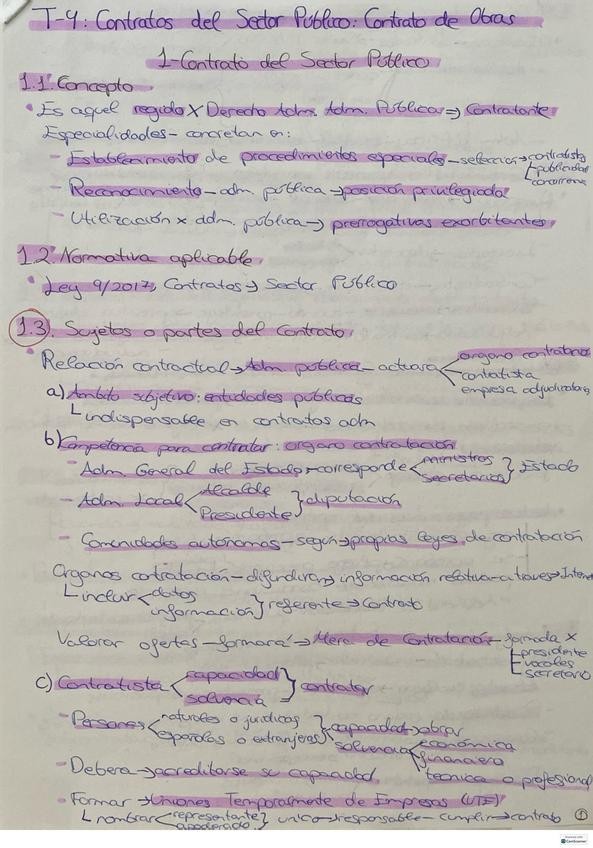 T-9: Contratos del Sector Público: Contrato de Obras
1-Contrato del Sector Público
1.1. Concepto
• Es aquel regido x Derecho Adm. Adm. Pública ⇒ Contratante
Especialidades - concretan en:
- Establecimiento de procedimientos especiales - selección → contratista
publicidad
concurrencia
- Reconocimiento - adm. pública → posición privilegiada
- Utilización x adm. pública → prerrogativas exorbitantes
1.2. Normativa aplicable
• Ley 9/2017, Contratos → Sector Público
1.3. Sujetos o partes del contrato
• Relación contractual → Adm. pública - actuara < organo contratano
contratista
empresa adjudicataria
a) Ámbito subjetivo: entidades públicas
indispensable en contratos adm
b) Competencia para contratar: organo contratación
- Adm. General del Estado → corresponde < ministros
secretarios } Estado
- Adm. Local < Alcalde
Presidente } diputación
- Comunidades autónomas - según → propias leyes de contratación
Organos contratación - difundiran → información relativa → a traves → Internet
incluir < datos
información } referente → Contrato
Valorar ofertas - formará → Mesa de Contratación - formada x
presidente
vocales
secretario
c) Contratista < capacidad
solvencia } contratar
- Personas < naturales o jurídicas
españolas o extranjeras } capacidad → obrar
solvencia < económica
financiero
técnica o profesional
- Debera → acreditarse su capacidad
- Formar → Uniones Temporalmente de Empresas (UTE)
nombrar < representante
apoderado } unico → responsable - cumplir → contrato
1
CamScanner